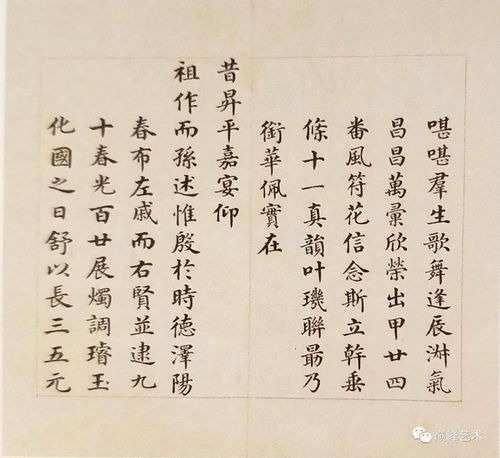 啿啿羣生歌舞逢辰淑氣
昌昌萬彙欣榮出甲廿四
番風符花信念斯立幹乗
條十一真韻叶璣聯最乃
銜華佩實在
昔昇平嘉宴仰
祖作而孫述惟殷於時德澤陽
春布左戚而右賢並逮九
十春光百廿展燭調璿玉
化國之日舒以長三五元
巅峰艺术